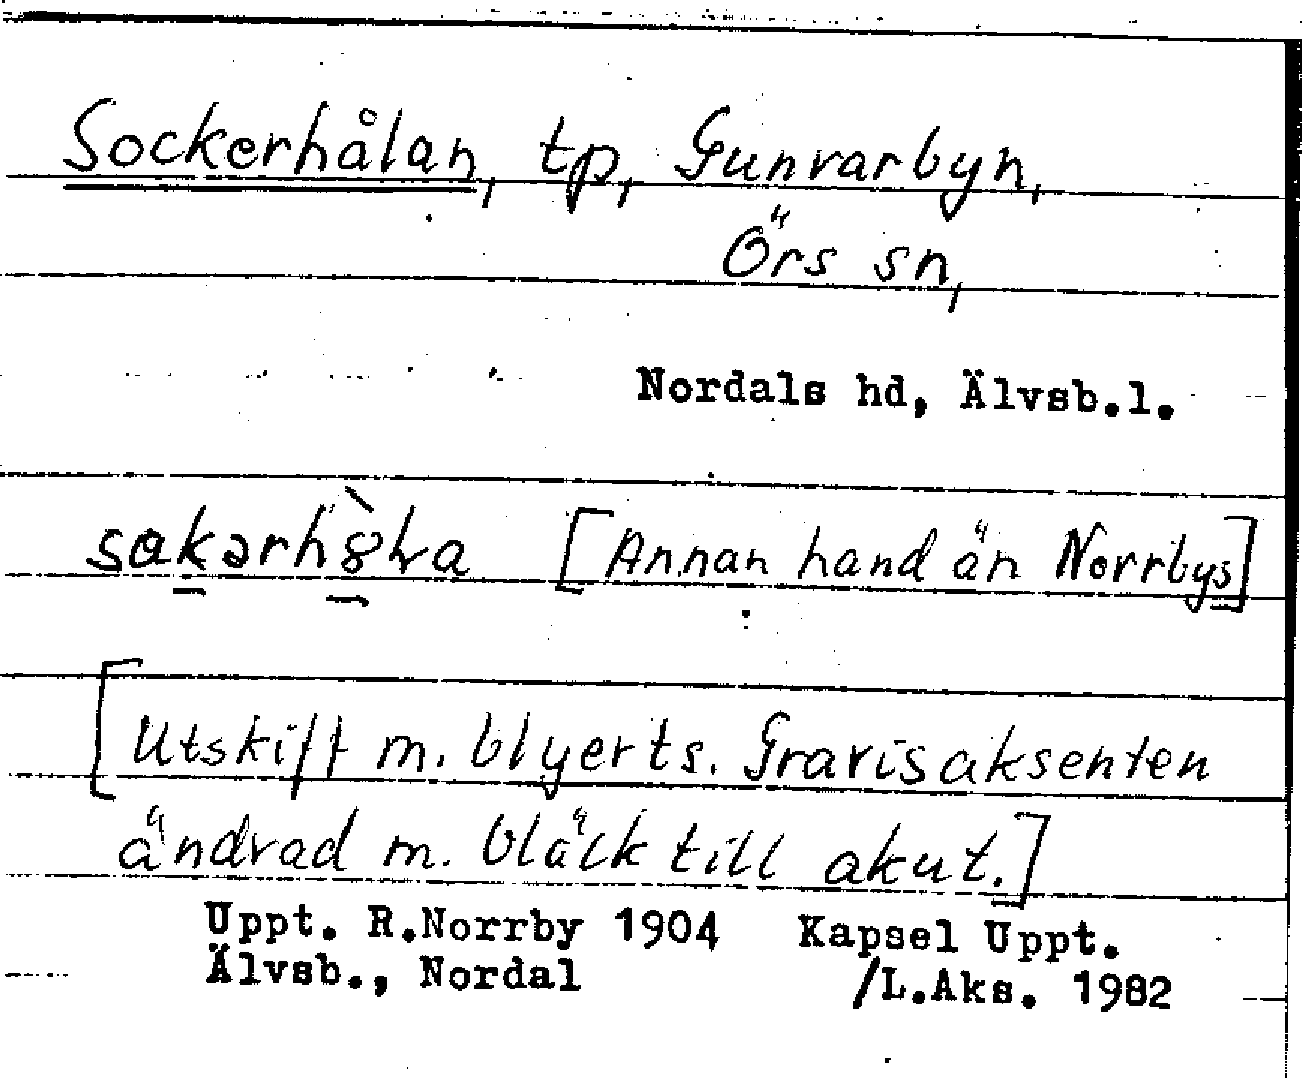 Sockerhålan, tp, Gunvarbyn,
Örs sn,
Nordals hd, Älvsb.l.
[Annan hand än Norrbys]
[Utskift m. blyerts. Gravisaksenten
ändrad m. bläck till akut.]
Uppt. R.Norrby 1904 Kapsel Uppt.
Älvsb., Nordal /L.Aks. 1982